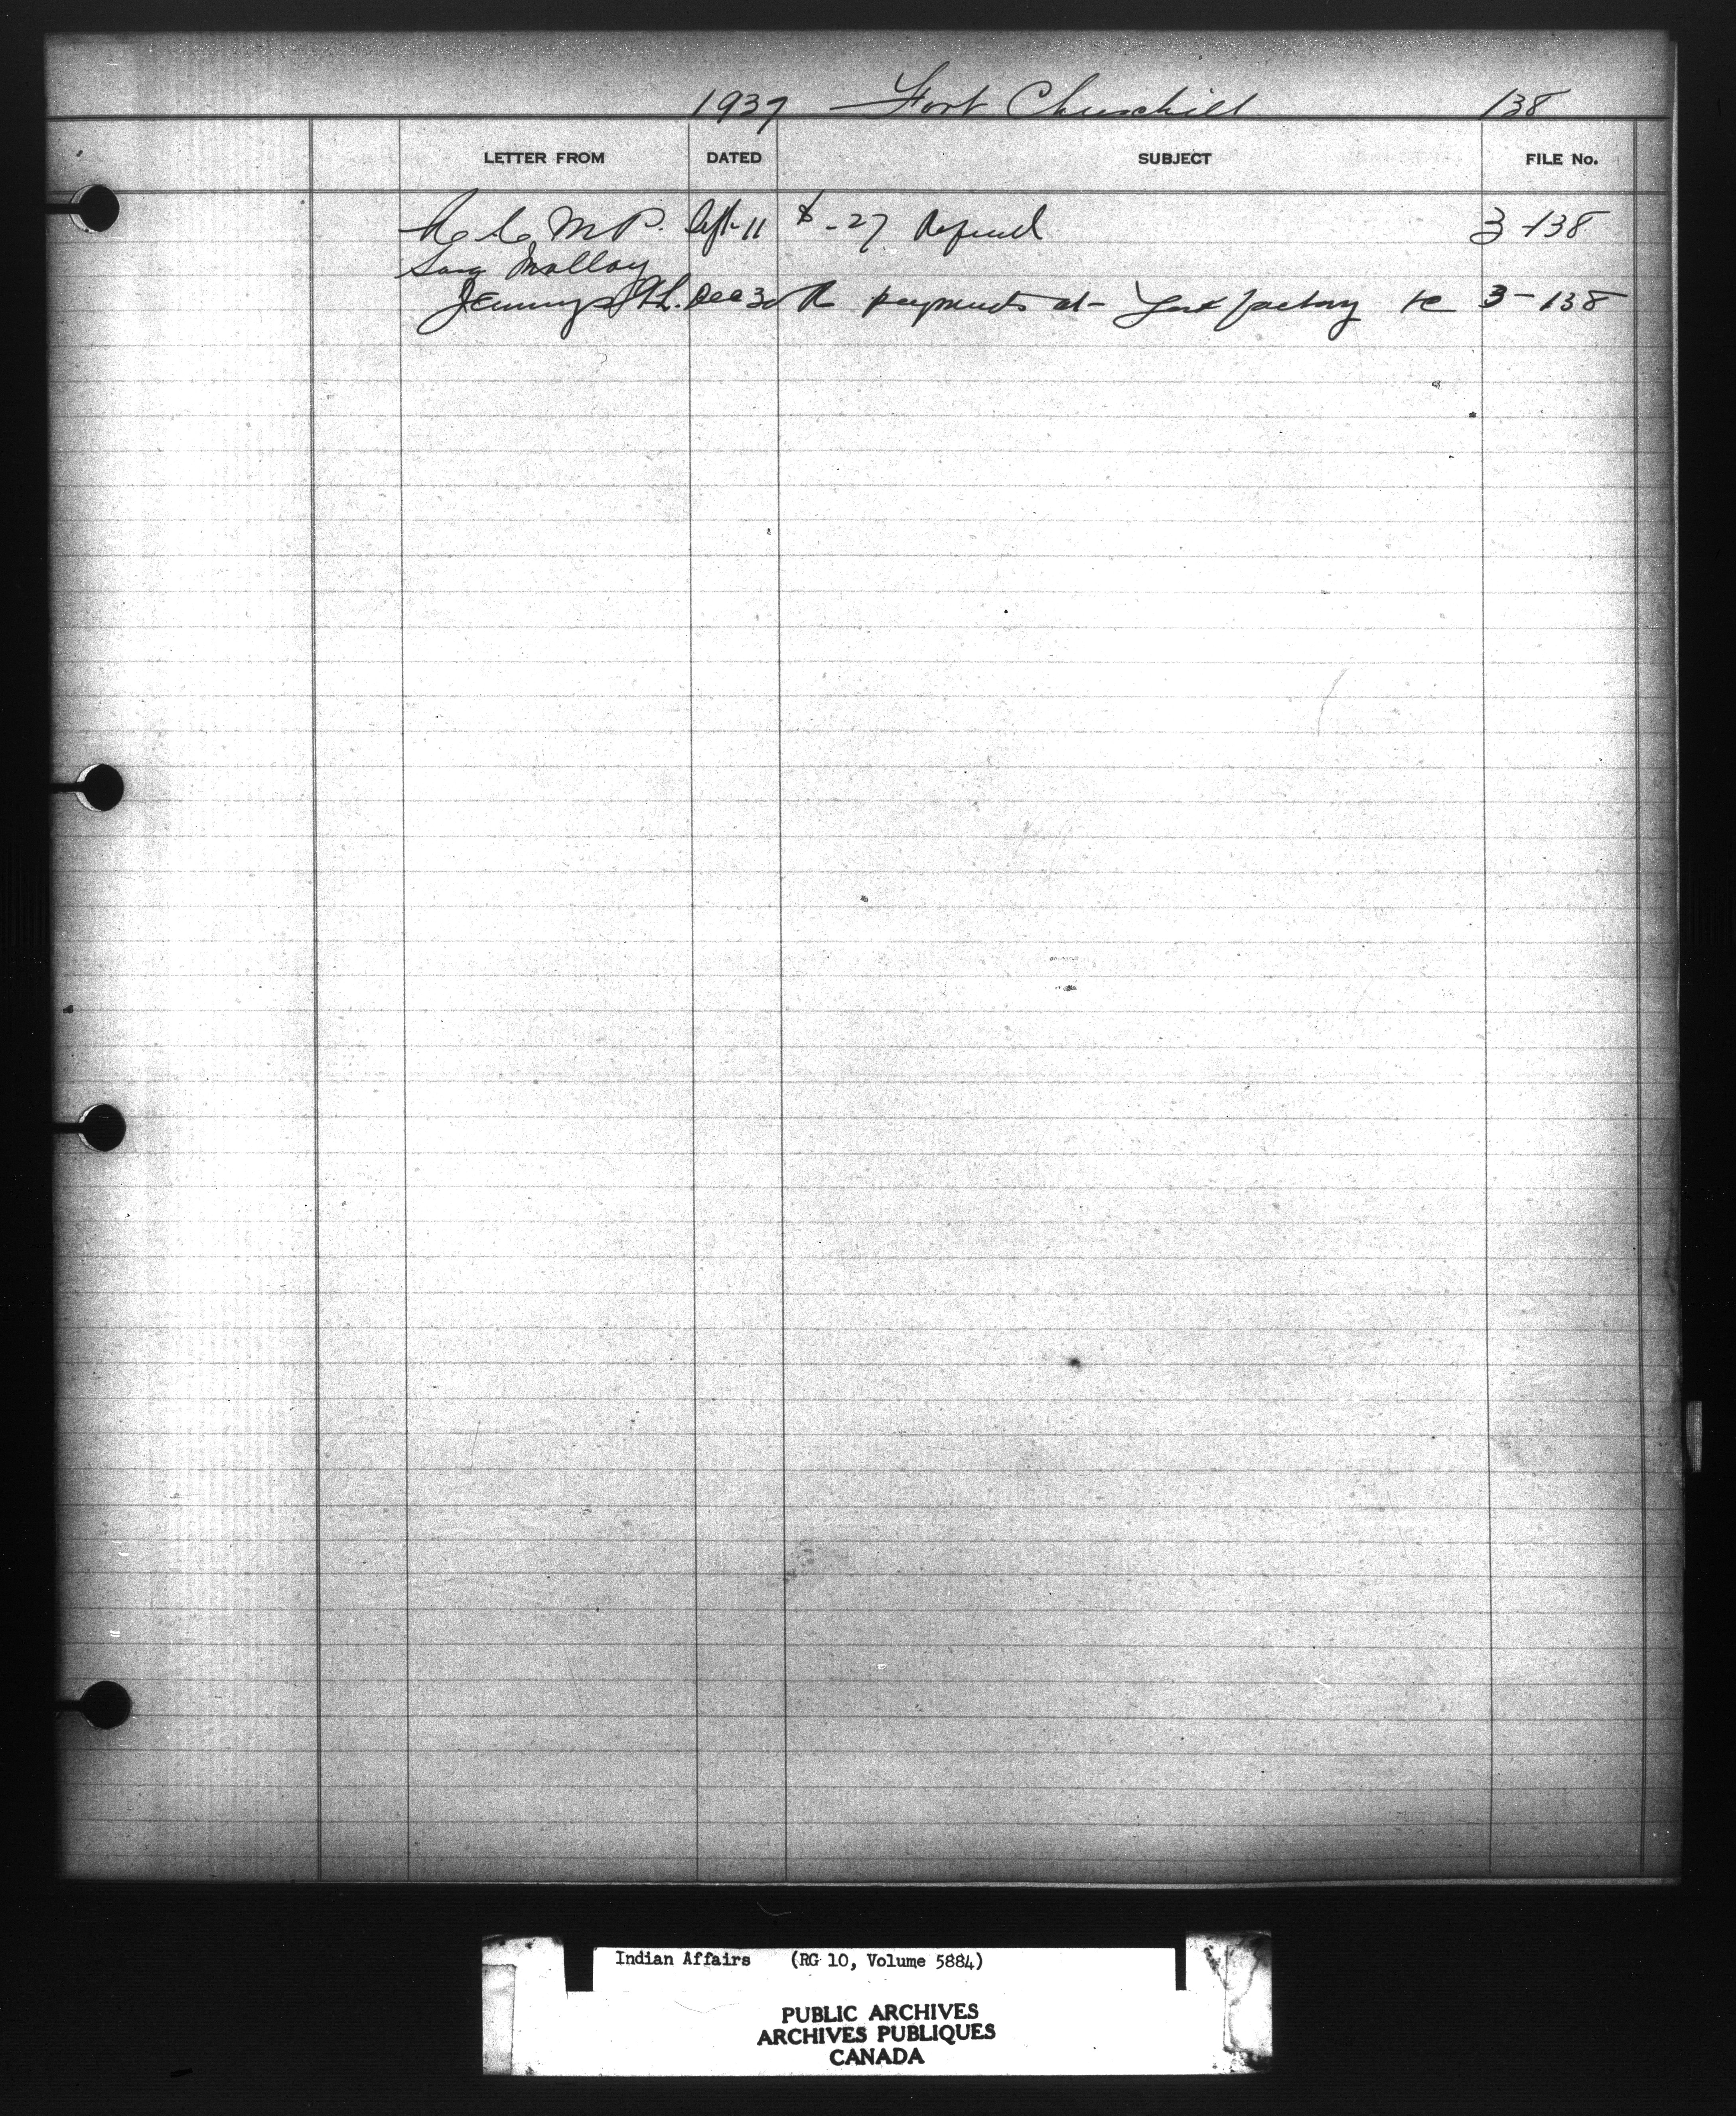 1937 Fort Churchill 138
LETTER FROM DATED SUBJECT FILE No.
R. C. M. P. Sept-11 $ -27 Refund 3-138
Molloy
Jennings Dec 30 Re payments at- York Factory 3-138
Indian Affairs (RG 10, Volume 5884)
PUBLIC ARCHIVES
ARCHIVES PUBLIQUES
CANADA